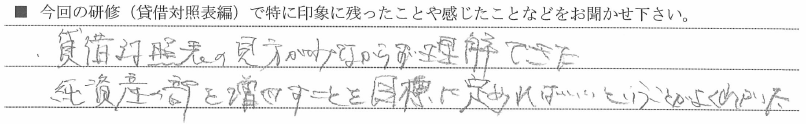 ■ 今回の研修（貸借対照表編）で特に印象に残ったことや感じたことなどをお聞かせ下さい。
・貸借対照表の見方がわずかながら理解できた
純資産の部を増やすことを目標に定めればいいということがよくわかった